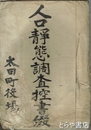 人口靜態調査控書綴
太田町役場
とらや書房